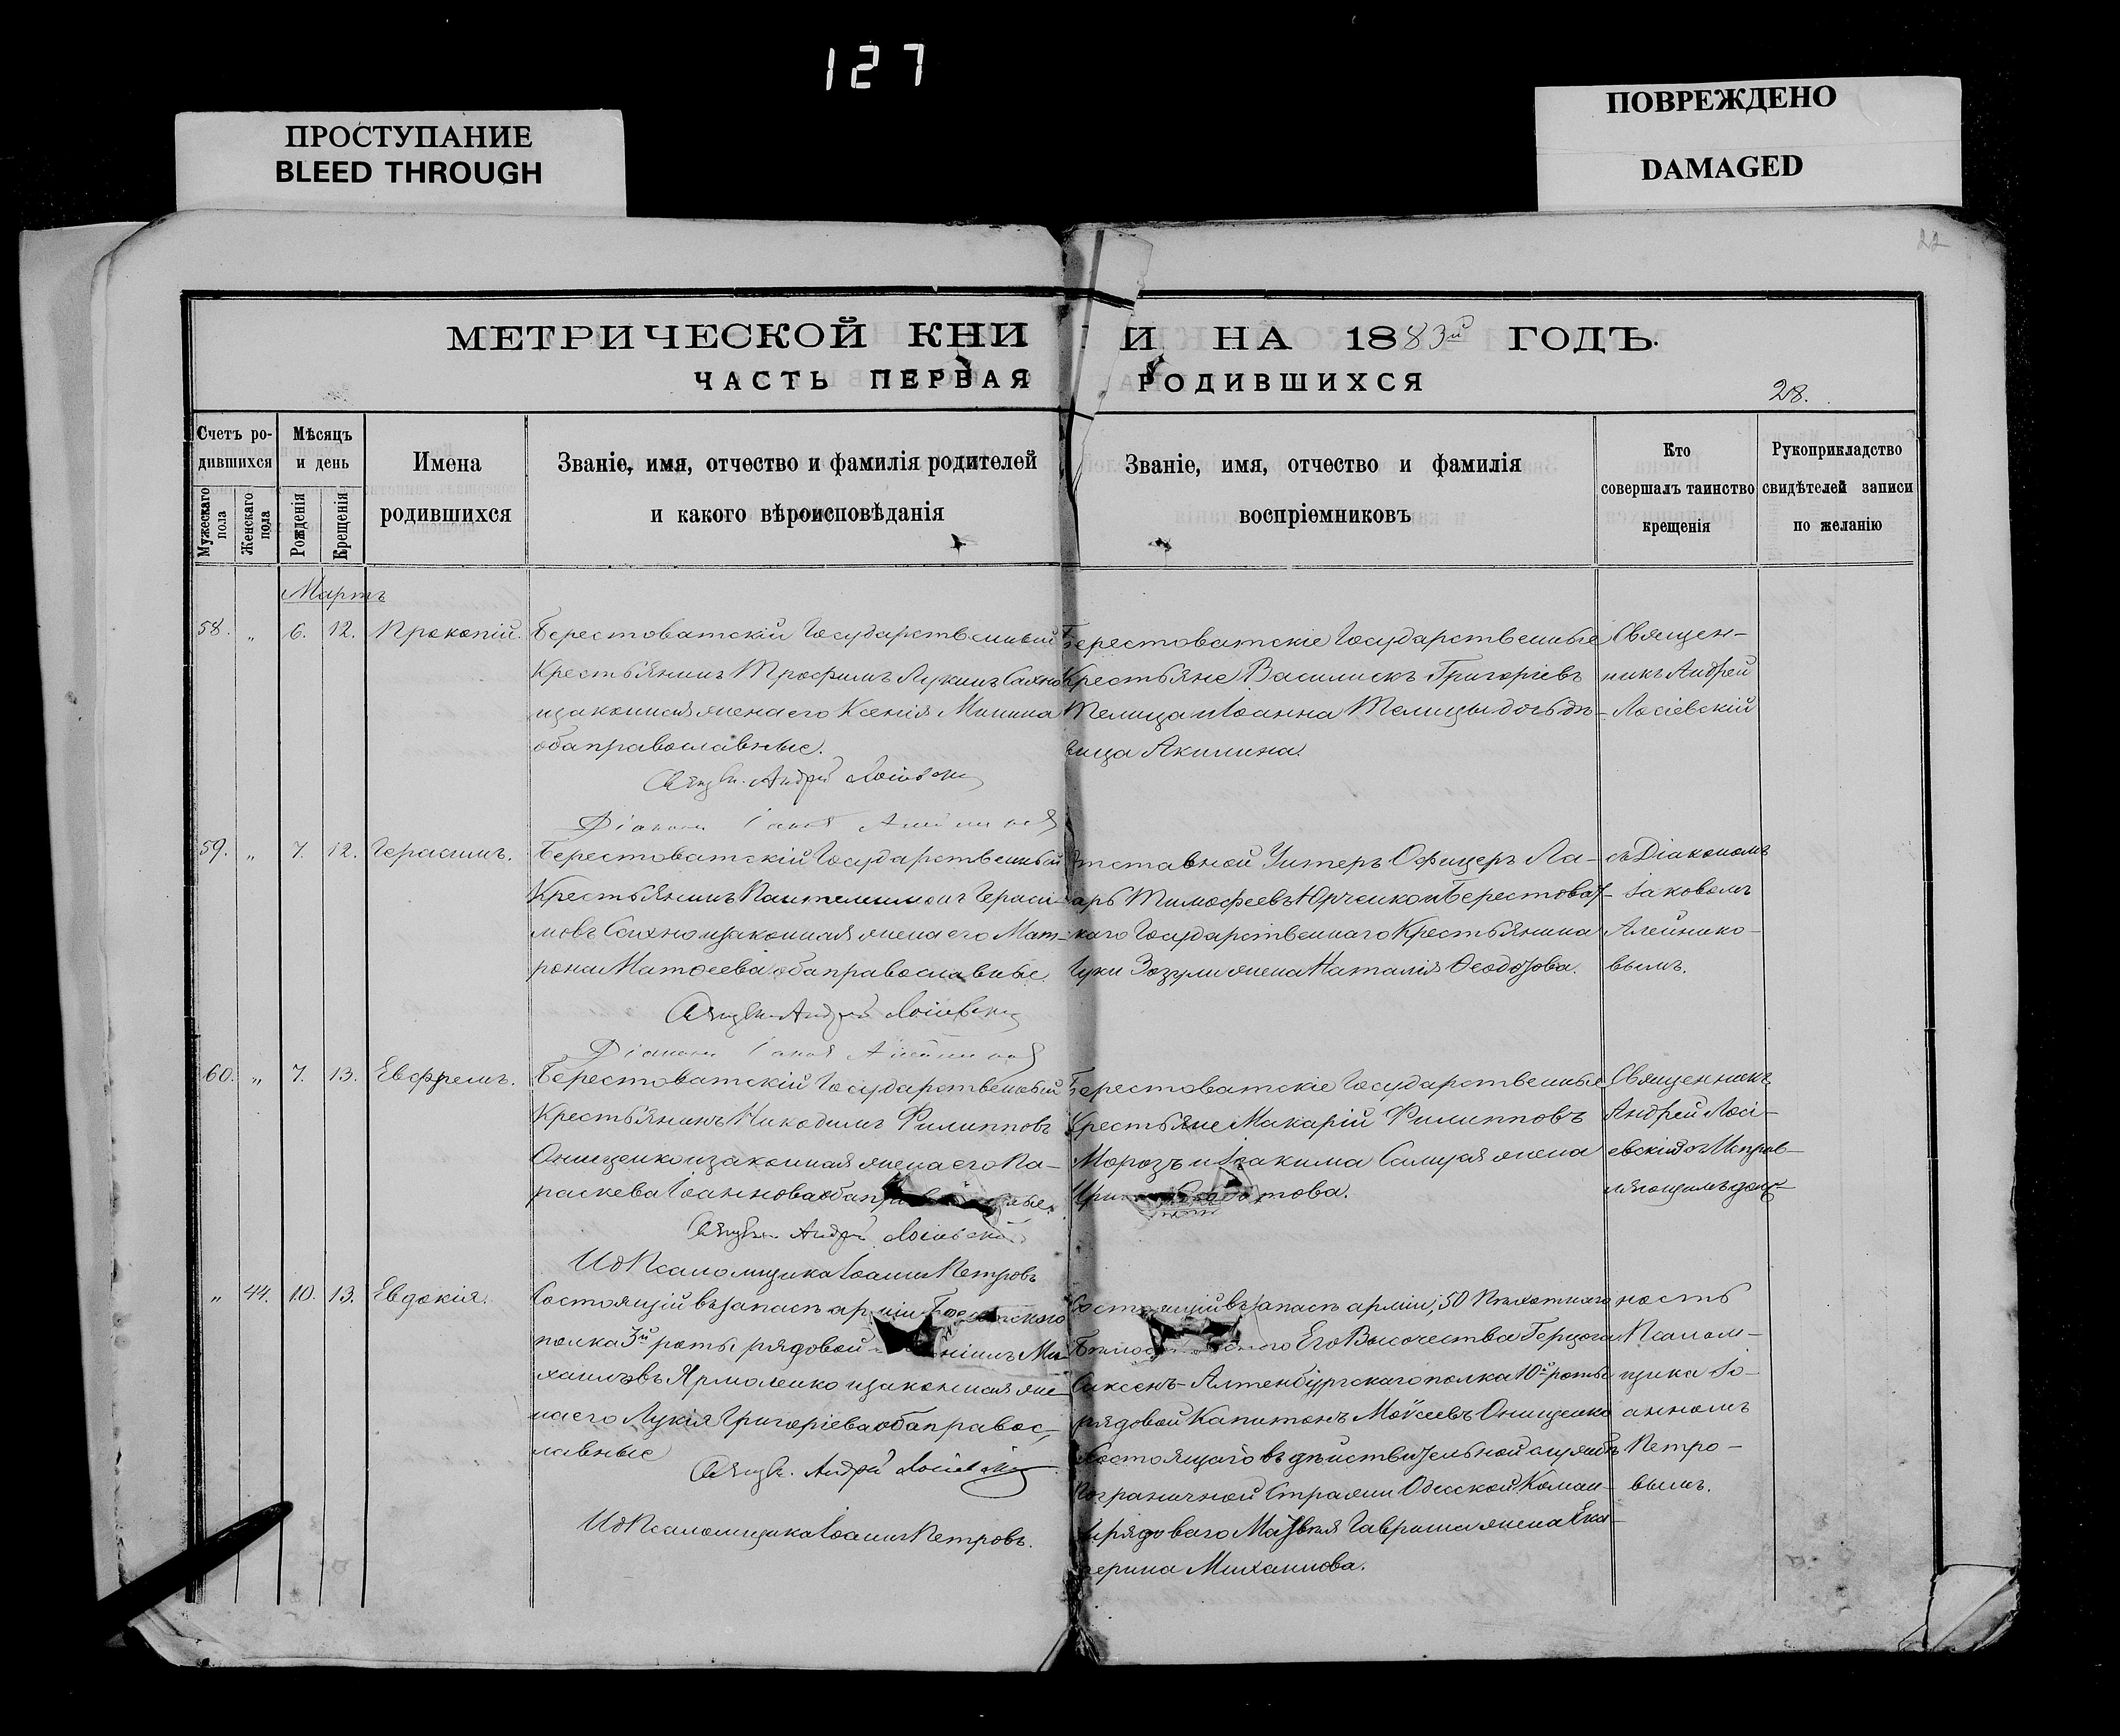 127
ПРОСТУПАНИЕ
BLEED THROUGH
ПОВРЕЖДЕНО
DAMAGED
22
МЕТРИЧЕСКОЙ КНИ И НА 1883й ГОДЪ.
ЧАСТЬ ПЕРВАЯ РОДИВШИХСЯ
28.
Счетъ ро-
дившихся
Мужескаго пола
Женскаго пола
Мѣсяцъ
и день
Рожденія
Крещенія
Имена
родившихся
Званіе, имя, отчество и фамилія родителей
и какого вѣроисповѣданія
Званіе, имя, отчество и фамилія
воспріемниковъ
Кто
совершалъ таинство
крещенія
Рукоприкладство
свидѣтелей записи
по желанію
Мартъ
58. „ 6. 12. Прокопій.
Берестоватскій Государственный
Крестьянинъ Трофимъ Лукинъ Сахно
и законная жена его Ксенія Минина
оба православные.
Священ. Андрей Лосіевскій
Діаконъ Іаковъ Алейниковъ
Берестоватскіе Государственные
Крестьяне Василискъ Григоріевъ
Телица и Іоанна Телицы дочь дѣ-
вица Акилина.
Священ-
никъ Андрей
Лосіевскій
59. „ 7. 12. Герасимъ.
Берестоватскій Государственный
Крестьянинъ Пантелимонъ Гераси-
мовъ Сахно и законная жена его Мат-
рона Матѳеева оба православные.
Священ. Андрей Лосіевскій
Діаконъ Іаковъ Алейниковъ
Отставной Унтеръ Офицеръ Ла-
арь Тимофеевъ Юрченко и Берестоват-
каго Государственнаго Крестьянина
Луки Зозули жена Наталія Ѳеодотова.
съ Діакономъ
Іаковомъ
Алейнико-
вымъ.
60. „ 7. 13. Евфремъ.
Берестоватскій Государственный
Крестьянинъ Никодимъ Филипповъ
Онищенко и законная жена его Па-
раскева Іоаннова оба
Священ. Андрей Лосіевскій
И д Псаломщика Іоаннъ Петровъ
Берестоватскіе Государственные
Крестьяне Макарій Филипповъ
Морозъ и Іоакима жена
Священникъ
Андрей Лосі-
евскій съ Исправ-
ляющимъ долж-
„ 44. 10. 13. Евдокія.
Состоящій въ запасѣ арміи
полка 3й роты рядовой Ми-
хаиловъ Ярмоленко и законная же-
на его Лукія Григоріева оба правос-
лавные
Священ. Андрей Лосіевскій
И д Псаломщика Іоаннъ Петровъ.
Состоящій въ запасѣ арміи, 50 Пѣхотнаго
Его Высочества Герцога
Саксенъ-Алтенбургскаго полка 10й роты
рядовой Капитонъ Моѵсеевъ Онищенко
и Состоящаго въ дѣйствительной службѣ
Пограничной Стражи Одесской Коман-
ды рядоваго Матвѣя Гавриша жена Ека-
терина Михаилова.
ность
Псалом-
щика Іо-
анномъ
Петро-
вымъ.